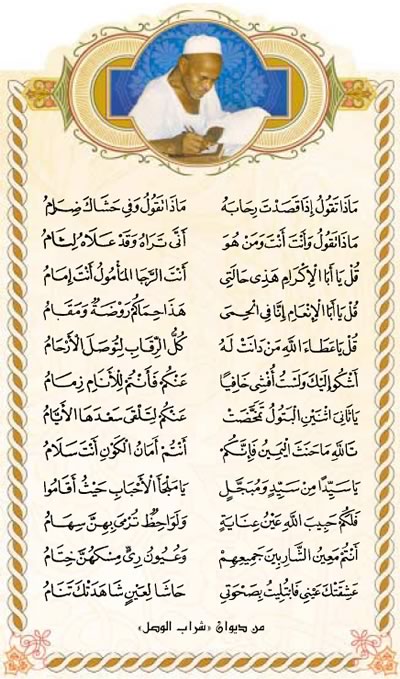 مَاذَا تَقُولُ إِذَا قَصَدْتَ رِحَابَهُ مَاذَا تَقُولُ وَفِي حَشَاكَ ضِرَامُ
مَاذَا تَقُولُ وَأَنْتَ أَنْتَ وَمَنْ هُوَ أَنَّى تَرَاهُ وَقَدْ عَلَاهُ لِثَامُ
قُلْ يَا أَبَا الْإِكْرَامِ هَذِي حَالَتِي أَنْتَ الرَّجَا الْمَأْمُولُ أَنْتَ إِمَامُ
قُلْ يَا أَبَا الْإِنْعَامِ إِنَّا فِي الْحِمَى هَذَا حِمَاكُمْ رَوْضَةٌ وَمَقَامُ
قُلْ يَا عَطَاءَ اللَّهِ مَنْ دَانَتْ لَهُ كُلُّ الرِّقَابِ لِتُوصَلَ الْأَرْحَامُ
أَشْكُو إِلَيْكَ وَلَسْتُ أُفْشِي خَافِيًا عَنْكُمْ فَأَنْتُمْ لِلْأَنَامِ زِمَامُ
يَا ثَانِيَ اثْنَيْنِ الْبَتُولُ تَمَخَّضَتْ عَنْكُمْ لِتَلْقَى سَعْدَهَا الْأَيَّامُ
تَاللَّهِ مَا حَنَثَ الْيَمِينُ فَإِنَّكُمْ أَنْتُمْ أَمَانُ الْكَوْنِ أَنْتَ سَلَامُ
يَا سَيِّدًا مِنْ سَيِّدٍ وَمُبَجَّلٍ يَا مَلْجَأَ الْأَحْبَابِ حَيْثُ أَقَامُوا
فَلَكُمْ حَبِيبَ اللَّهِ عَيْنُ عِنَايَةٍ وَلَوَاحِظٌ تُرْمَى بِهِنَّ سِهَامُ
أَنْتُمْ مَعِينُ الشَّارِبِينَ جَمِيعِهِمْ وَعُيُونُ رِيٍّ مِسْكُهُنَّ خِتَامُ
عَشِقَتْكَ عَيْنِي فَابْتُلِيتُ بِصَحْوَتِي حَاشَا لِعَيْنٍ شَاهَدَتْكَ تَنَامُ
من ديوان «شراب الوصل»